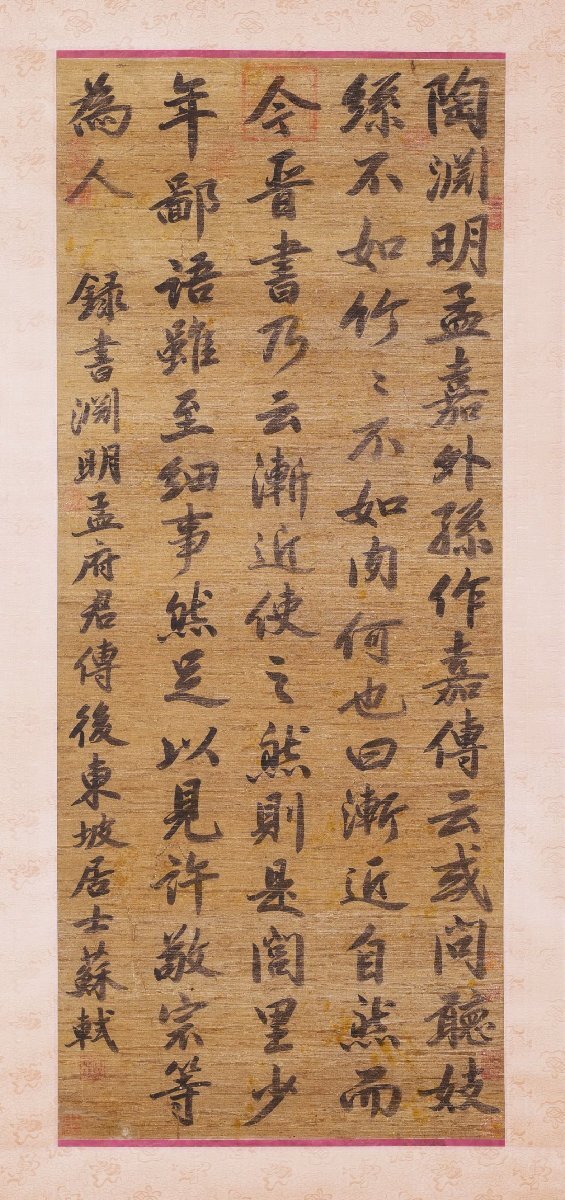 陶渊明孟嘉外孫作嘉傳云或問聽妓
絲不如竹〻不如肉何也曰漸近自然而
今晋書乃云漸近使之然則是閭里少
年鄙語雖至細事然足以見許敬宗等
為人 録書渊明孟府君傳後東坡居士蘇軾